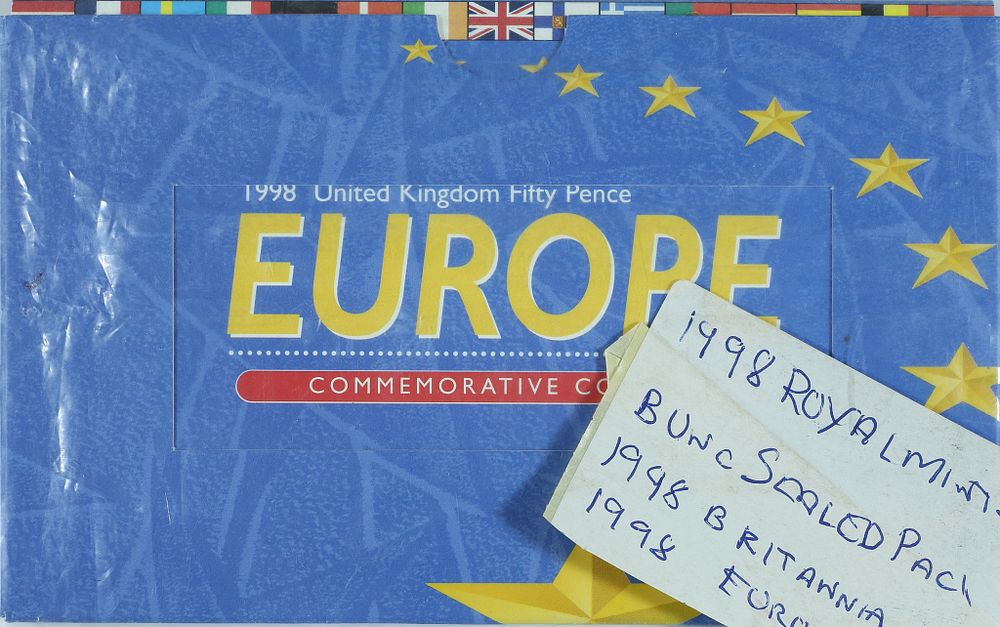 1998 United Kingdom Fifty Pence
EUROPE
COMMEMORATIVE CO
1998 ROYAL MINT
BUNC SEALED PACK
1998 BRITANNIA
1998 EURO